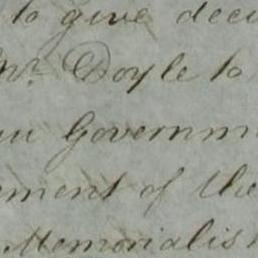 to give deci
Mr. Doyle to
Governm
ement of the
Memorialis